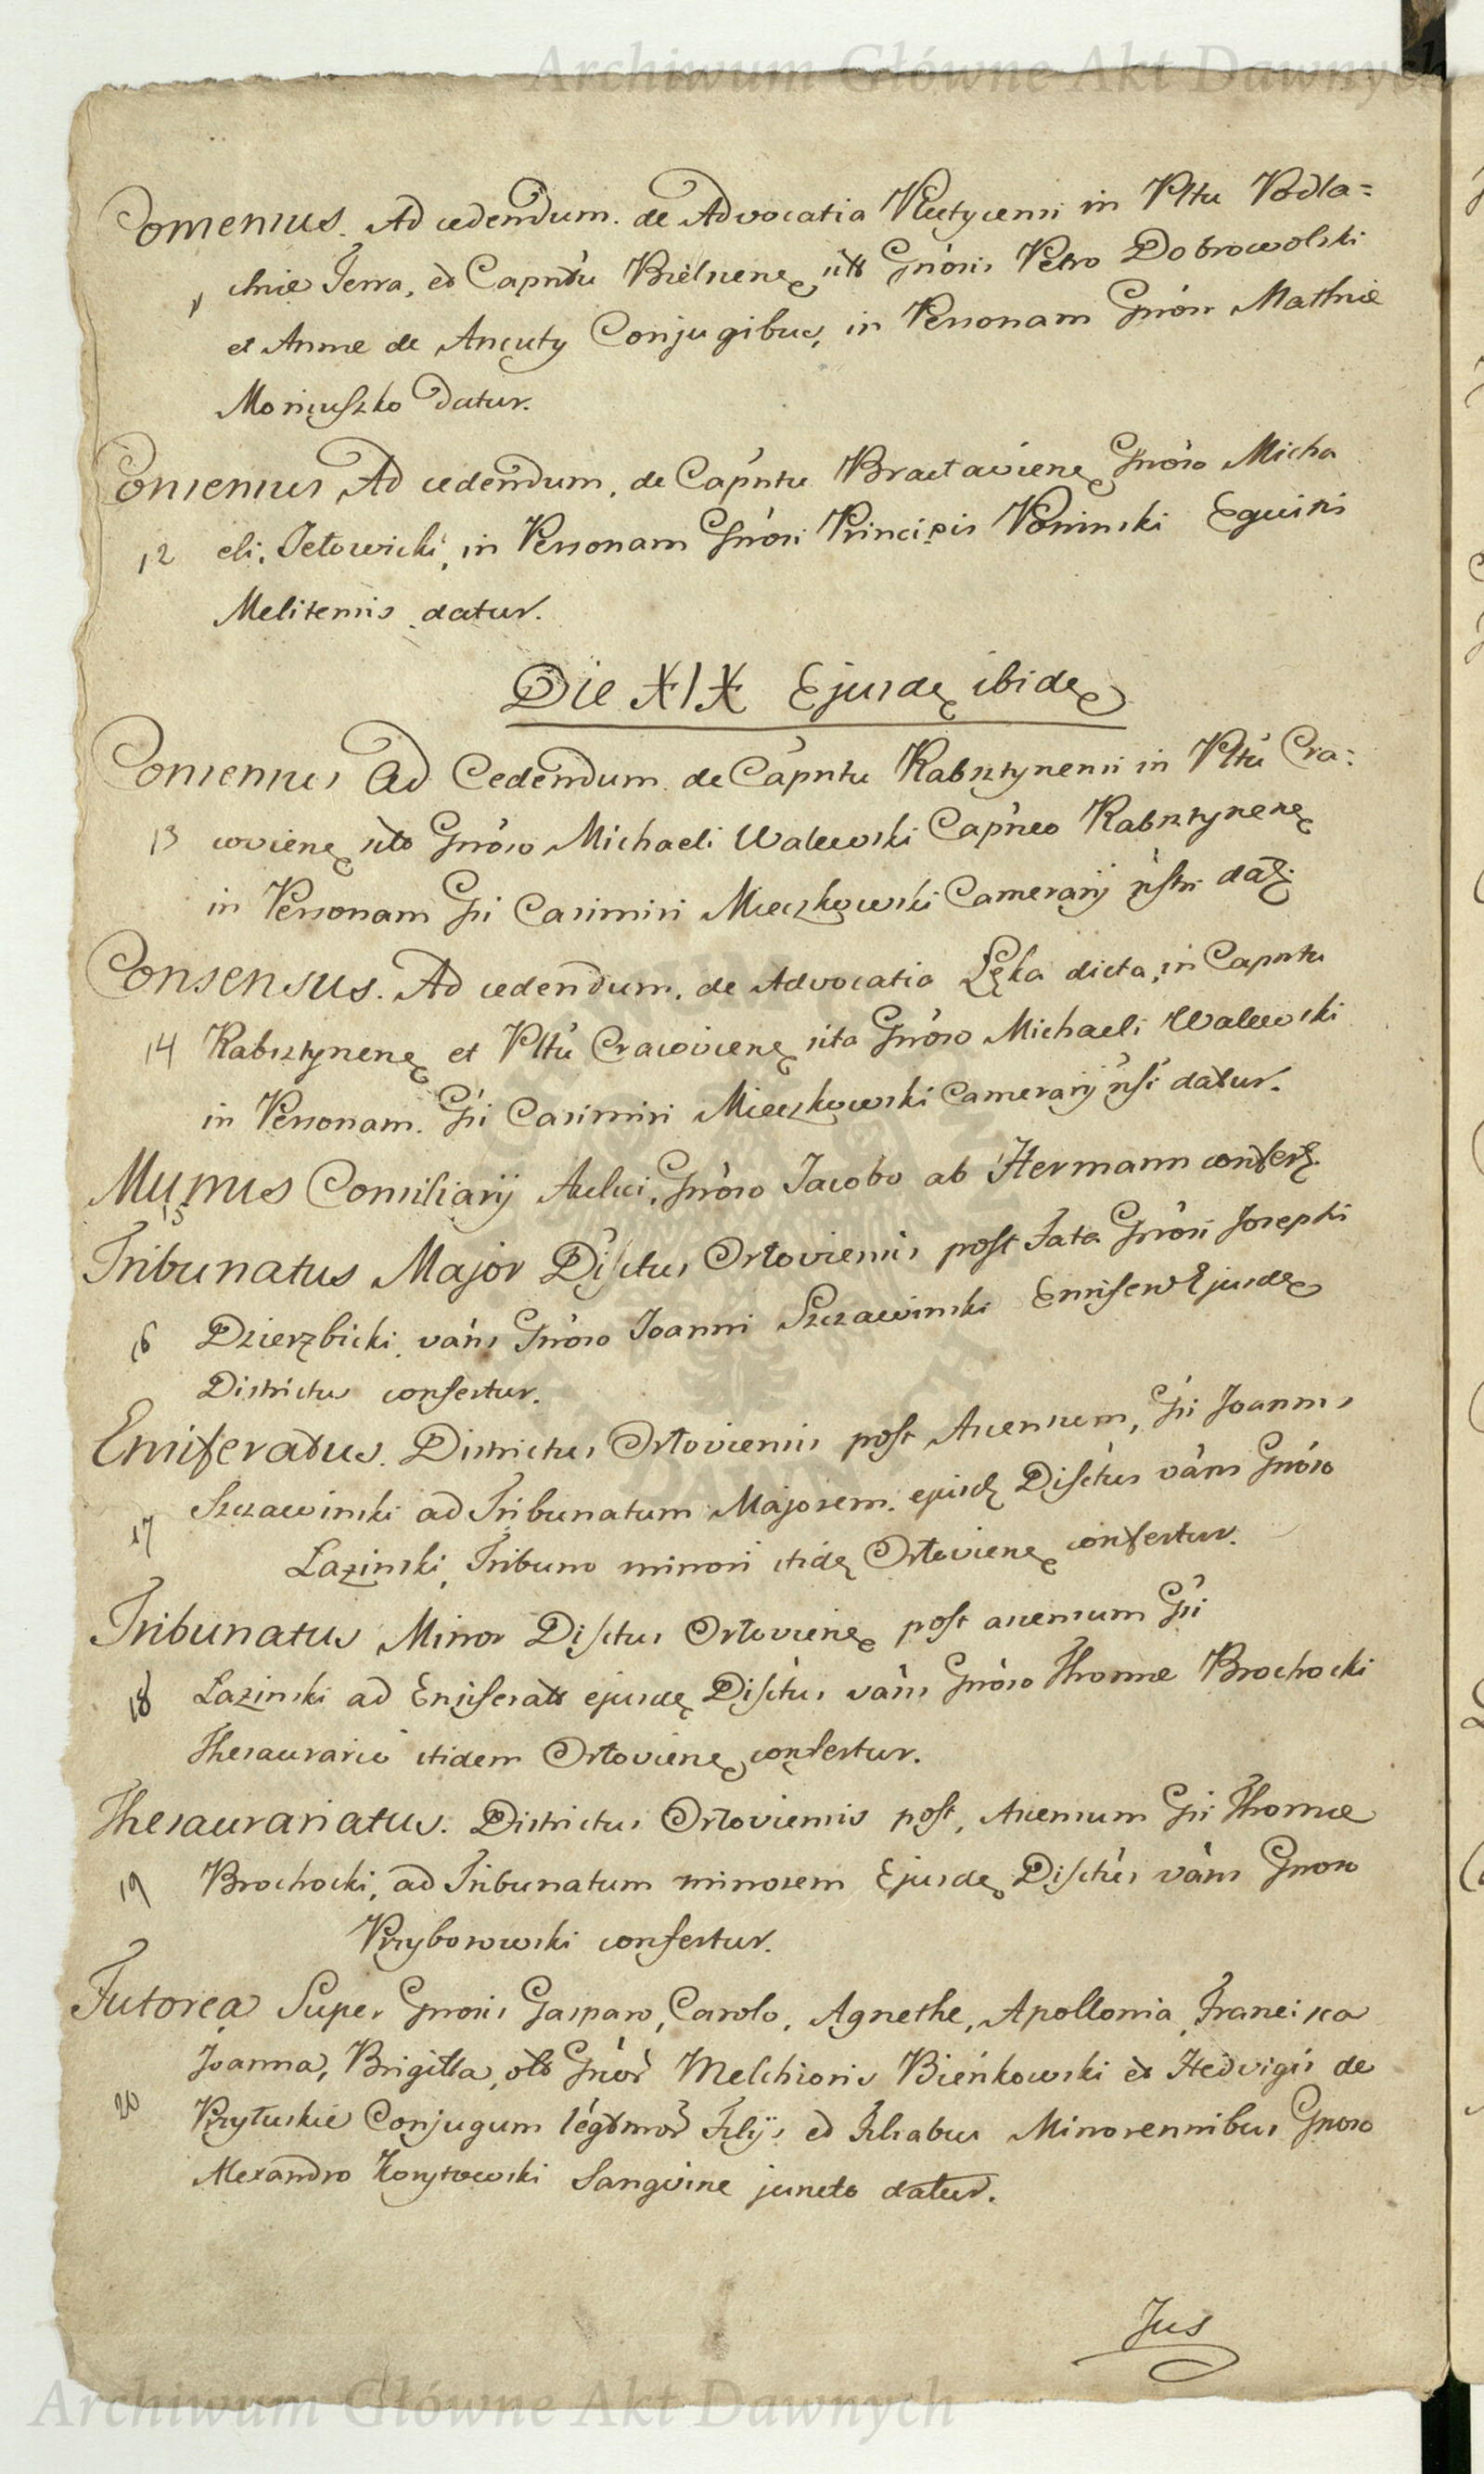 Archiwum Główne Akt Dawnych
Consensus. Ad cedendum. de Advocatia Kletycensi in Pltu Podla=
chiæ Terra, et Capntu Bielscenę sitt Gnosis Petro Dobrowolski
et Annæ de Ancuty Conjugibus, in Personam Gnosi Mathiæ
Moniuszko datur.
Consensus Ad cedendum, de Capntu Bractaviens. Gnoso Micha
12 eli, Jełowicki, in Personam Gnosi Principis Poninski Equitis
Melitensis datur.
Die XIX Ejusdę ibidę
Consensus Ad Cedendum de Capntu Rabsztynensi in Pltu Cra:
13 covienę sito Gnoso Michaeli Walewski Capneo Rabsztynenę
in Personam Gsi Casimiri Mieczkowski Camerarij nstri datę.
Consensus. Ad cedendum. de Advocatia Lęka dicta, in Capntu
14 Rabsztynenę et Pltu Cracovienę sita Gnoso Michaeli Walewski
in Personam. Gsi Casimiri Mieczkowski Camerarij nsi datur.
Munus Consiliarij Aulici, Gnoso Jacobo ab Hermann confert.
15
Tribunatus Major Disctus Orłoviensis post Fata Gnosi Josephi
16 Dzierzbicki, vans Gnoso Joanni Szczawinski Ensifero Ejusdę
Districtus confertur.
Ensiferatus. Districtus Orłoviensis post Ascensum, Gsi Joannis
17 Szczawinski ad Tribunatum Majorem. ejusdę Disctus vans Gnoso
Łazinski, Tribuno minori itidę Orłovienę confertur.
Tribunatus Minor Disctus Orłovienę post ascensum Gsi
18 Łazinski ad Ensiferatt ejusdę Disctus vans Gnoso Thomæ Brochocki
Thesaurario itidem Orłovienę confertur.
Thesaurariatus. Districtus Orłoviensis post, Ascensum Gsi Thomæ
19 Brochocki, ad Tribunatum minorem Ejusdę Disctus vans Gnoso
Przyborowski confertur.
Tutorea Super Gnosis Gasparo, Carolo, Agnethe, Apollonia, Francisca
Joanna, Brigitta, olt Gnor Melchioris Bieńkowski et Hedvigis de
20 Przyłuskie Conjugum legtmor Filijs et Filiabus Minorennibus Gnoso
Alexandro Korytowski Sangvine juncto datur.
Jus
Archiwum Główne Akt Dawnych